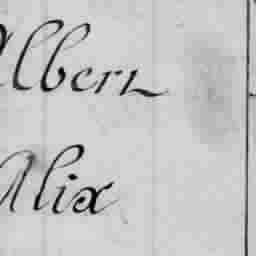 Albert
Alix